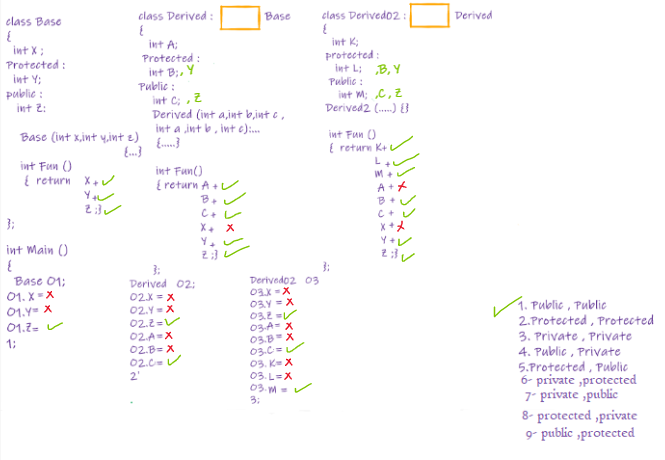 class Base
{
int X ;
Protected :
int Y;
public :
int Z:
Base (int x,int y,int z)
{...}
int Fun ()
{ return X +
Y +
Z ;}
};
int Main ()
{
Base O1;
O1. X = x
O1.Y= x
O1.Z= ✓
1;
class Derived : Base
{
int A;
Protected :
int B; , Y
Public :
int C; , Z
Derived (int a,int b,int c ,
int a ,int b , int c):...
{.....}
int Fun()
{ return A +
B +
C +
X + x
Y +
Z ;}
};
Derived O2;
O2.X = x
O2.Y = x
O2.Z= ✓
O2.A= x
O2.B= x
O2.C= ✓
2'
class Derived02 : Derived
{
int K;
protected :
int L; ,B, Y
Public :
int M; ,C, Z
Derived2 (.....) {}
int Fun ()
{ return K+
L +
M +
A + x
B +
C +
X + x
Y +
Z ;}
};
Derived02 O3
O3.X = x
O3.Y = x
O3.Z= ✓
O3.A= x
O3.B= x
O3.C= ✓
O3. K= x
O3. L= x
O3. M = ✓
3;
✓ 1. Public , Public
2.Protected , Protected
3. Private , Private
4. Public , Private
5.Protected , Public
6- private ,protected
7- private ,public
8- protected ,private
9- public ,protected